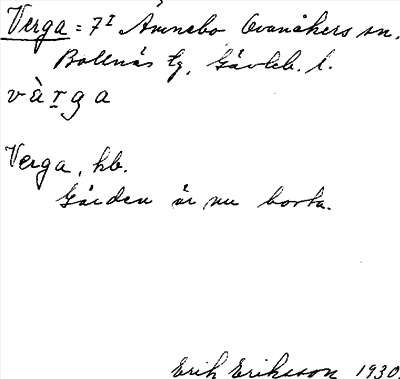 Verga = 7¹ Ämnebo Ovanåkers sn,
Bollnäs tg, Gävleb. l.
vàrga
Verga, hb.
Gården är nu borta.
Erik Eriksson 1930.